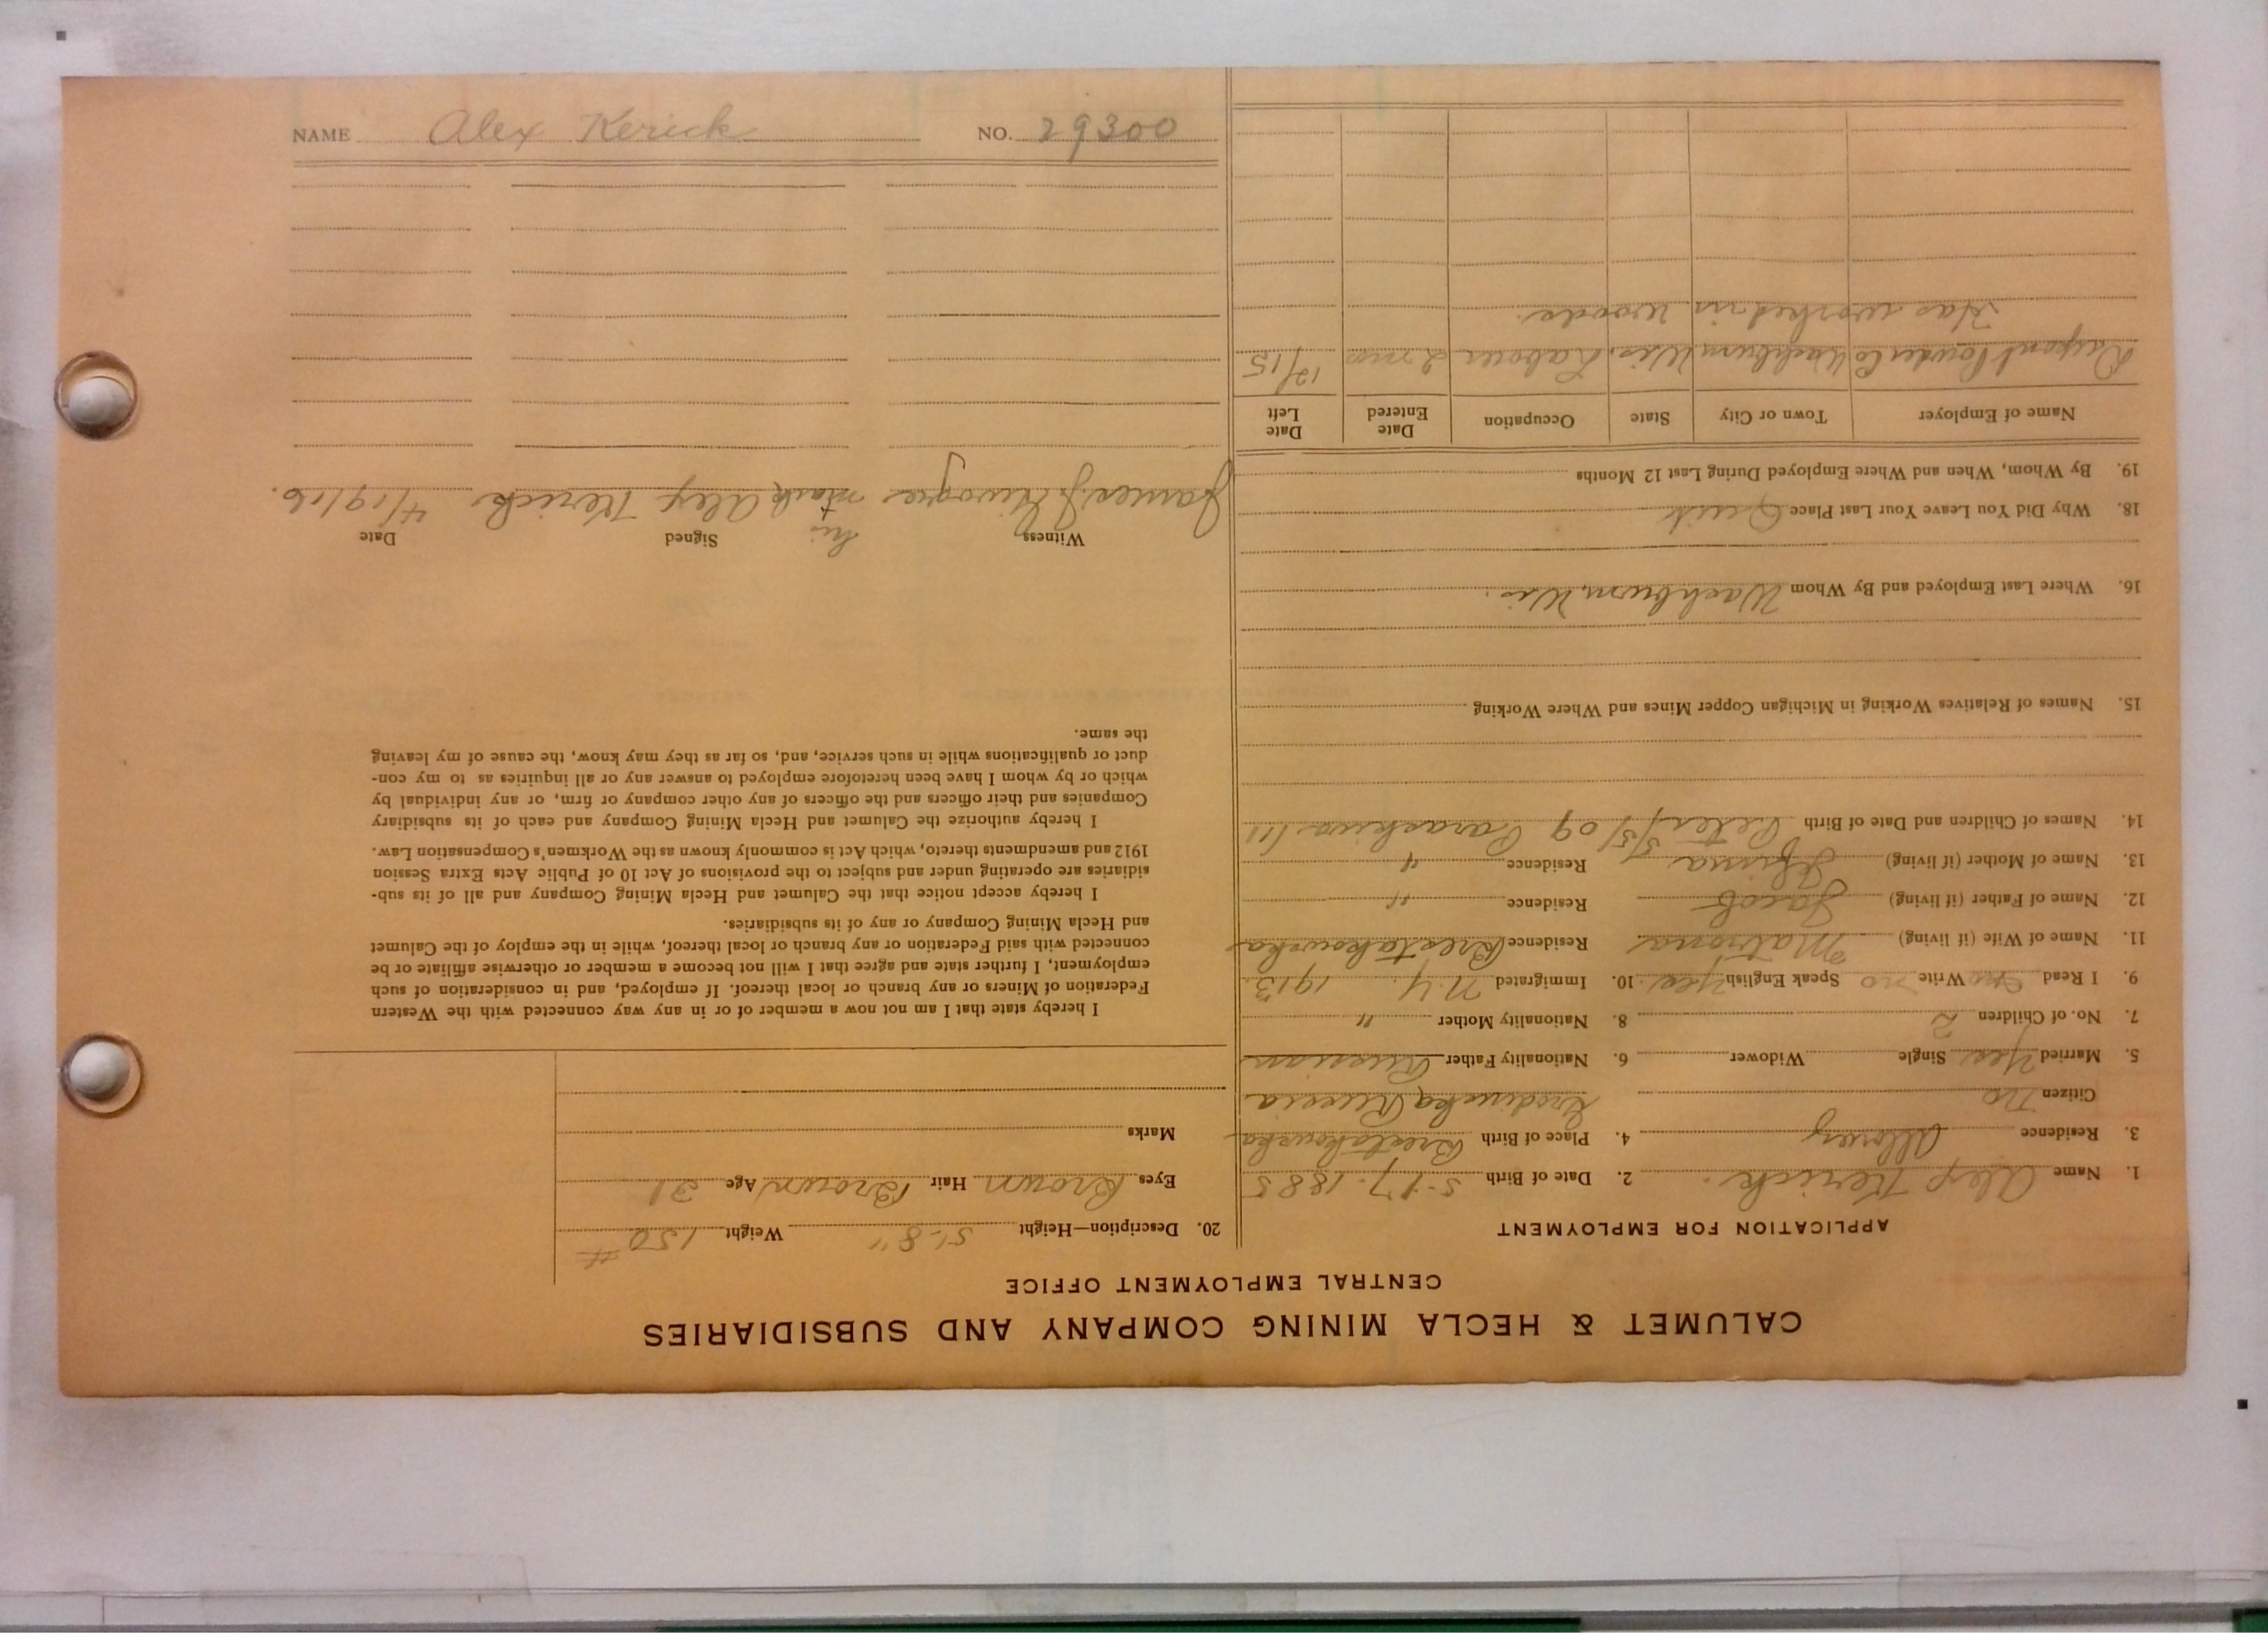 NAME Alex Kerick NO. 29300
CALUMET & HECLA MINING COMPANY AND SUBSIDIARIES
CENTRAL EMPLOYMENT OFFICE
APPLICATION FOR EMPLOYMENT
1. Name Alex Kerick. 2. Date of Birth 5-17-1885
3. Residence Allouez 4. Place of Birth Brestakowska
Citizen no Russia
5. Married Yes Single Widower 6. Nationality Father Russian
7. No. of Children 2 8. Nationality Mother "
9. I Read no Write no Speak English Yes. 10. Immigrated N.Y. 1913
11. Name of Wife (if living) Matrona Residence Brestakowska
12. Name of Father (if living) Jacob Residence "
13. Name of Mother (if living) Residence "
14. Names of Children and Date of Birth Peter 5/5/09 Paraskiva /11
15. Names of Relatives Working in Michigan Copper Mines and Where Working
16. Where Last Employed and By Whom Washburn, Wis.
18. Why Did You Leave Your Last Place Quit
19. By Whom, When and Where Employed During Last 12 Months
Name of Employer Town or City State Occupation Date Entered Date Left
Dupont Powder Co Washburn Wis. Labour 2 mos 12/15
Has worked in woods.
20. Description—Height 5'-8" Weight 150 #
Eyes Brown Hair Brown Age 31
Marks
I hereby state that I am not now a member of or in any way connected with the Western
Federation of Miners or any branch or local thereof. If employed, and in consideration of such
employment, I further state and agree that I will not become a member or otherwise affiliate or be
connected with said Federation or any branch or local thereof, while in the employ of the Calumet
and Hecla Mining Company or any of its subsidiaries.
I hereby accept notice that the Calumet and Hecla Mining Company and all of its sub-
sidiaries are operating under and subject to the provisions of Act 10 of Public Acts Extra Session
1912 and amendments thereto, which Act is commonly known as the Workmen's Compensation Law.
I hereby authorize the Calumet and Hecla Mining Company and each of its subsidiary
Companies and their officers and the officers of any other company or firm, or any individual by
which or by whom I have been heretofore employed to answer any or all inquiries as to my con-
duct or qualifications while in such service, and, so far as they may know, the cause of my leaving
the same.
Witness Signed Date
his
James J. + mark Alex Kerick 4/19/16.